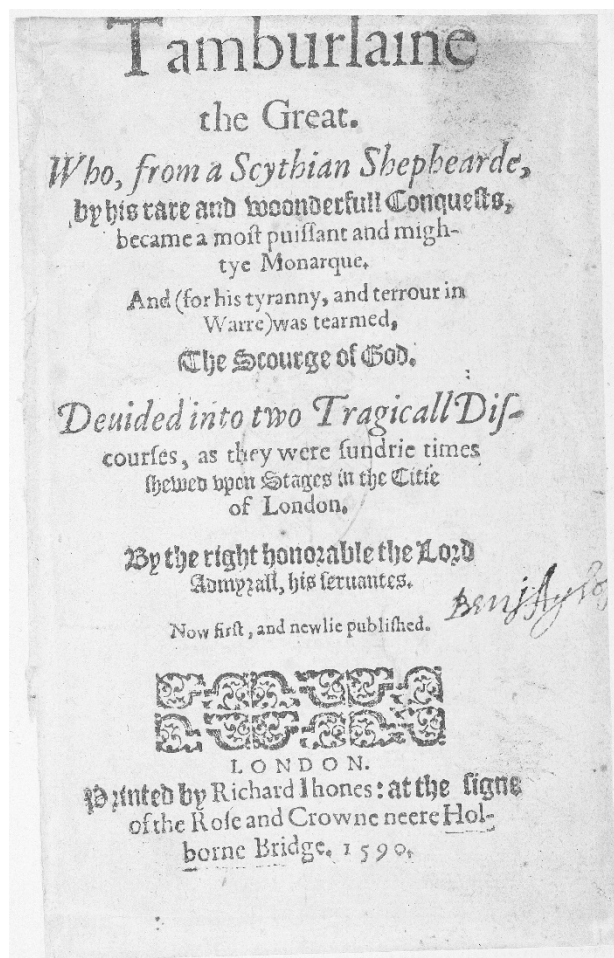 Tamburlaine
the Great.
Who, from a Scythian Shephearde,
by his rare and woonderfull Conquests,
became a most puissant and migh-
tye Monarque.
And (for his tyranny, and terrour in
Warre) was tearmed,
The Scourge of God.
Deuided into two Tragicall Dis-
courses, as they were sundrie times
shewed vpon Stages in the Citie
of London.
By the right honorable the Lord
Admyrall, his seruantes.
Now first, and newlie published.
LONDON.
Printed by Richard Ihones: at the signe
of the Rose and Crowne neere Hol-
borne Bridge. 1590.